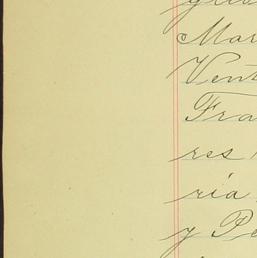 Mar
Vent
Fra
res
ria
y Pe